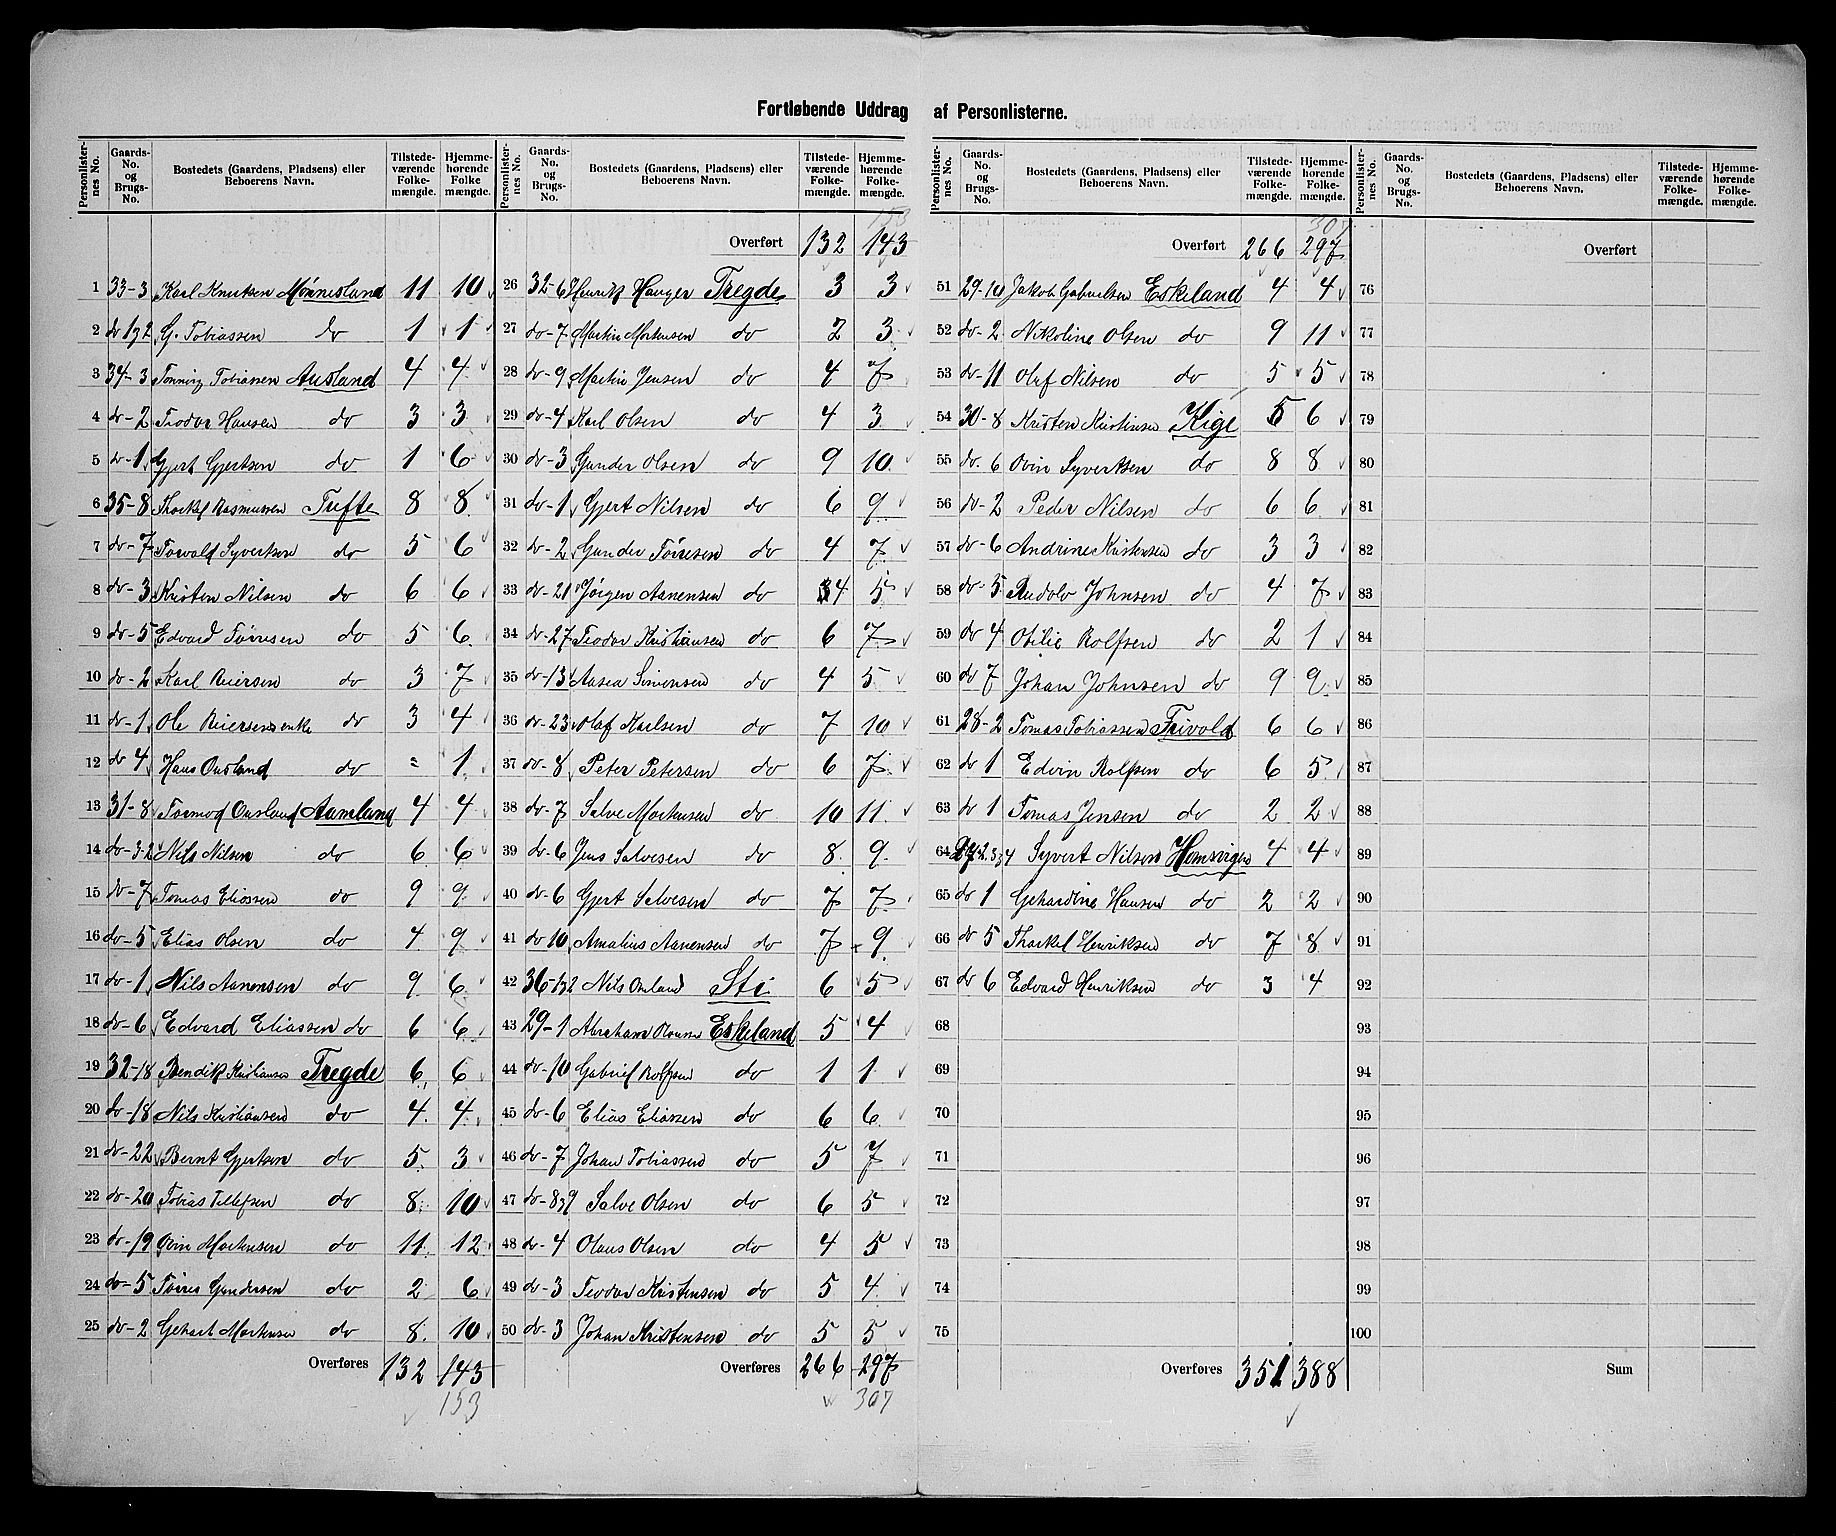 Fortløbende Uddrag af Personlisterne.
Personlister-nes No. | Gaards-No. og Brugs-No. | Bostedets (Gaardens, Pladsens) eller Beboerens Navn. | Tilstede-værende Folke-mængde. | Hjemme-hørende Folke mængde.
1 33-3 Karl Knutsen Mønnesland 11 10
2 do 1,2 G. Tobiassen do 1 1
3 34-3 Tønnes Tobiassen Ausland 4 4
4 do-2 Teodor Hansen do 3 3
5 do-1 Gjert Gjertsen do 1 6
6 35-8 Thorkel Rasmussen Tufte 8 8
7 do-7 Torvald Syvertsen do 5 6
8 do-3 Kristen Nilsen do 6 6
9 do-5 Edvard Tørresen do 5 6
10 do-2 Karl Reiersen do 3 7
11 do-1 Ole Reiersens enke do 3 4
12 do 4 Hans Ousland do = 1
13 31-8 Tormod Ousland Aamland 4 4
14 do-3-2 Nils Nilsen do 6 6
15 do-7 Tomas Eliassen do 9 9
16 do-5 Elias Olsen do 4 9
17 do-1 Nils Aanensen do 9 6
18 do-6 Edvard Eliassen do 6 6
19 32-18 Bendik Kristiansen Tregde 6 6
20 do-18 Nils Kristiansen do 4 4
21 do-22 Bernt Gjertsen do 5 3
22 do-20 Tobias Tellefsen do 8 10
23 do-19 Ovin Mortensen do 11 12
24 do-5 Tørres Gundersen do 2 6
25 do-2 Gehart Mortensen do 8 10
Overføres 132 143
153
Personlister-nes No. | Gaards-No. og Brugs-No. | Bostedets (Gaardens, Pladsens) eller Beboerens Navn. | Tilstede-værende Folke-mængde. | Hjemme-hørende Folke-mængde.
153
Overført 132 143
26 32-6 Henrik Hauger Tregde 3 3
27 do-7 Martin Mortensen do 2 3
28 do-9 Martin Jensen do 4 7
29 do-4 Karl Olsen do 4 3
30 do-3 Gunder Olsen do 9 10
31 do-1 Gjert Nilsen do 6 9
32 do-2 Gunder Tørresen do 4 7
33 do-21 Jørgen Aanensen do 4 5
34 do-27 Teodor Kristiansen do 6 7
35 do-13 Aasea Simonsen do 4 5
36 do-23 Olaf Karlsen do 7 10
37 do-8 Peter Petersen do 6 7
38 do-7 Salve Mortensen do 10 11
39 do-6 Jens Salvesen do 8 9
40 do-6 Gjert Salvesen do 7 7
41 do 10 Amalius Aanensen do 7 9
42 36-1,2 Nils Omland Sti 6 5
43 29-1 Abraham Eskeland 5 4
44 do-10 Gabriel Rolfsen do 1 1
45 do-6 Elias Eliassen do 6 6
46 do-7 Johan Tobiassen do 5 7
47 do-8,9 Salve Olsen do 6 5
48 do-4 Olaus Olsen do 4 5
49 do-3 Teodor Kristensen do 5 4
50 do-3 Johan Kristensen do 5 5
Overføres 266 297
307
Personlister-nes No. | Gaards-No. og Brugs-No. | Bostedets (Gaardens, Pladsens) eller Beboerens Navn. | Tilstede-værende Folke-mængde. | Hjemme-hørende Folke-mængde.
307
Overført 266 297
51 29-10 Jakob Gabrielsen Eskeland 4 4
52 do-2 Nikoline Olsen do 9 11
53 do-11 Olaf Nilsen do 5 5
54 30-8 Kristen Kristensen Kige 5 6
55 do. 6 Ovin Syvertsen do 8 8
56 do-2 Peder Nilsen do 6 6
57 do-6 Andrine Kristensen do 3 3
58 do-5 Rudolv Johnsen do 4 7
59 do 4 Otilie Rolfsen do 2 1
60 do 7 Johan Johnsen do 9 9
61 28-2 Tomas Tobiassen Frivold 6 6
62 do 1 Edvin Rolfsen do 6 5
63 do 1 Tomas Jensen do 2 2
64 27-2,3,4 Syvert Nilsen Homsvigen 4 4
65 do 1 Gehardine Hansen do 2 2
66 do 5 Thorkel Henriksen do 7 8
67 do 6 Edvard Henriksen do 3 4
68
69
70
71
72
73
74
75
Overføres 351 388
Personlister-nes No. | Gaards-No. og Brugs-No. | Bostedets (Gaardens, Pladsens) eller Beboerens Navn. | Tilstede-værende Folke-mængde. | Hjemme-hørende Folke-mængde.
Overført
76
77
78
79
80
81
82
83
84
85
86
87
88
89
90
91
92
93
94
95
96
97
98
99
100
Sum